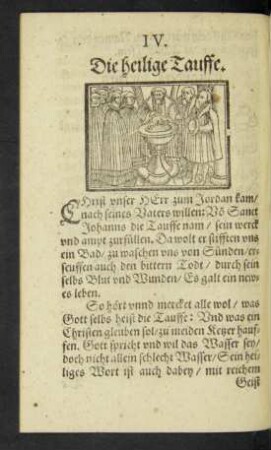 IV.
Die heilige Tauffe.
CHrist vnser HErr zum Jordan kam/
nach seines Vaters willen: Võ Sanct
Johanns die Tauffe nam / sein werck
vnd ampt zurfüllen. Da wolt er stifften vns
ein Bad / zu waschen vns von Sünden / er-
seuffen auch den bittern Todt / durch sein
selbs Blut vnd Wunden / Es galt ein new-
es leben.
So hört vnnd mercket alle wol / was
Gott selbs heist die Tauffe: Vnd was ein
Christen gleuben sol / zu meiden Ketzer hauf-
fen. Gott spricht vnd wil das Wasser sey /
doch nicht allein schlecht Wasser / Sein hei-
liges Wort ist auch dabey / mit reichem
Geist